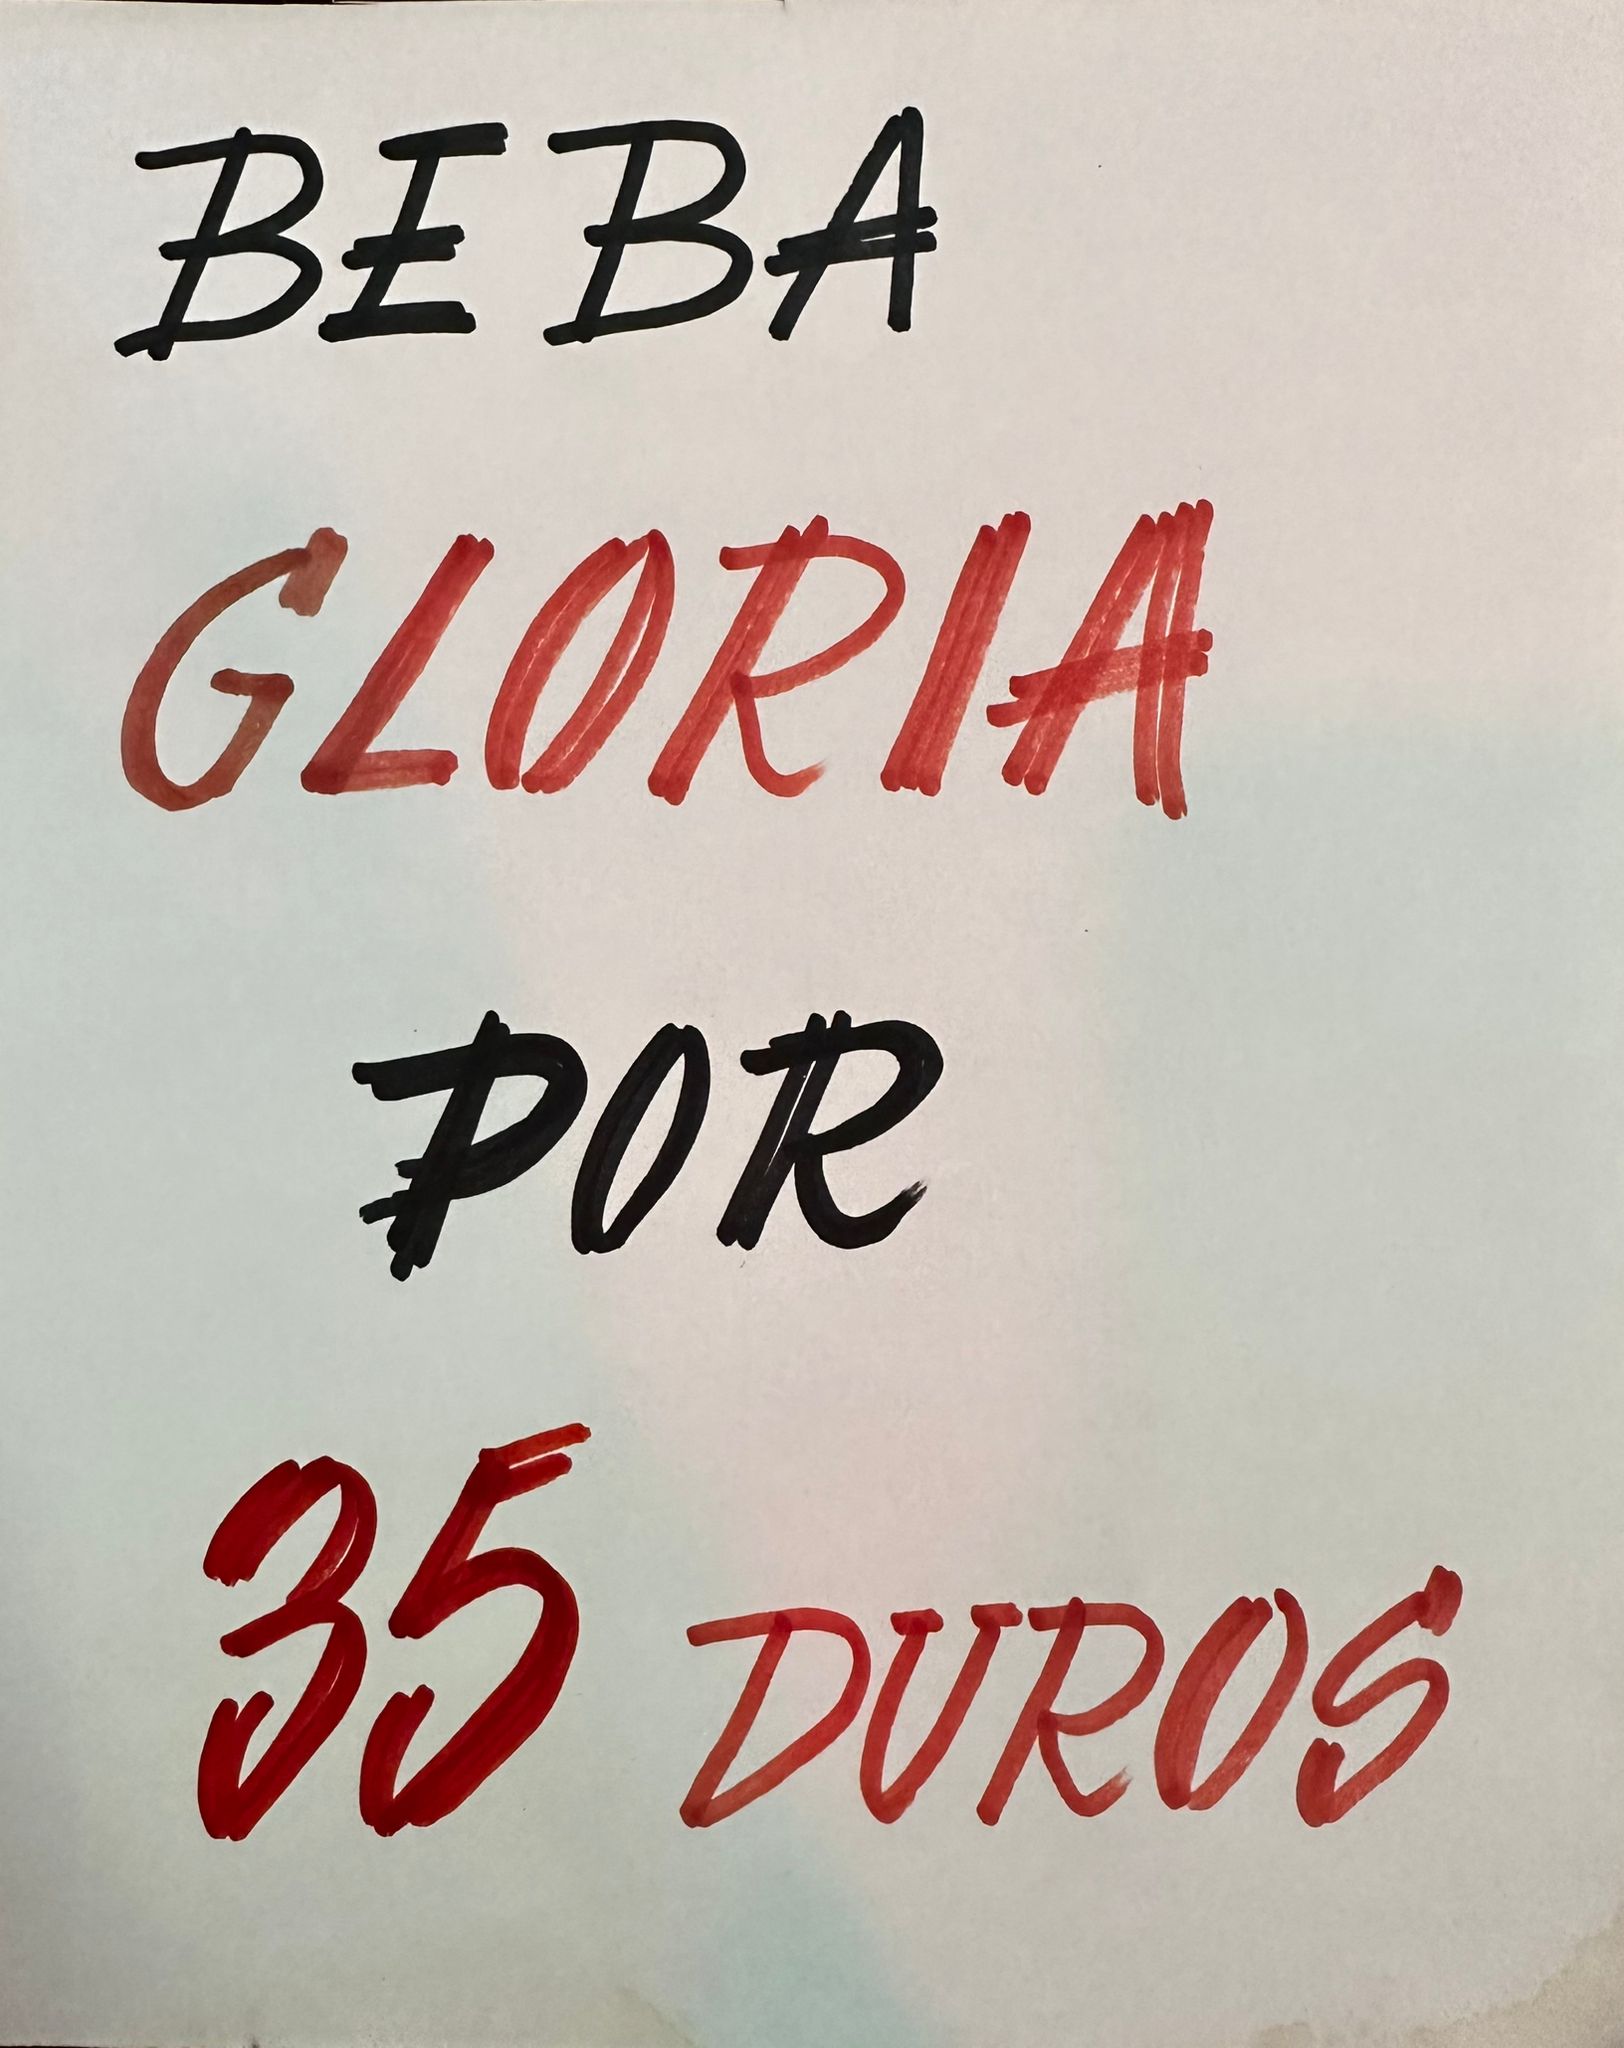 BEBA
GLORIA
POR
35 DUROS